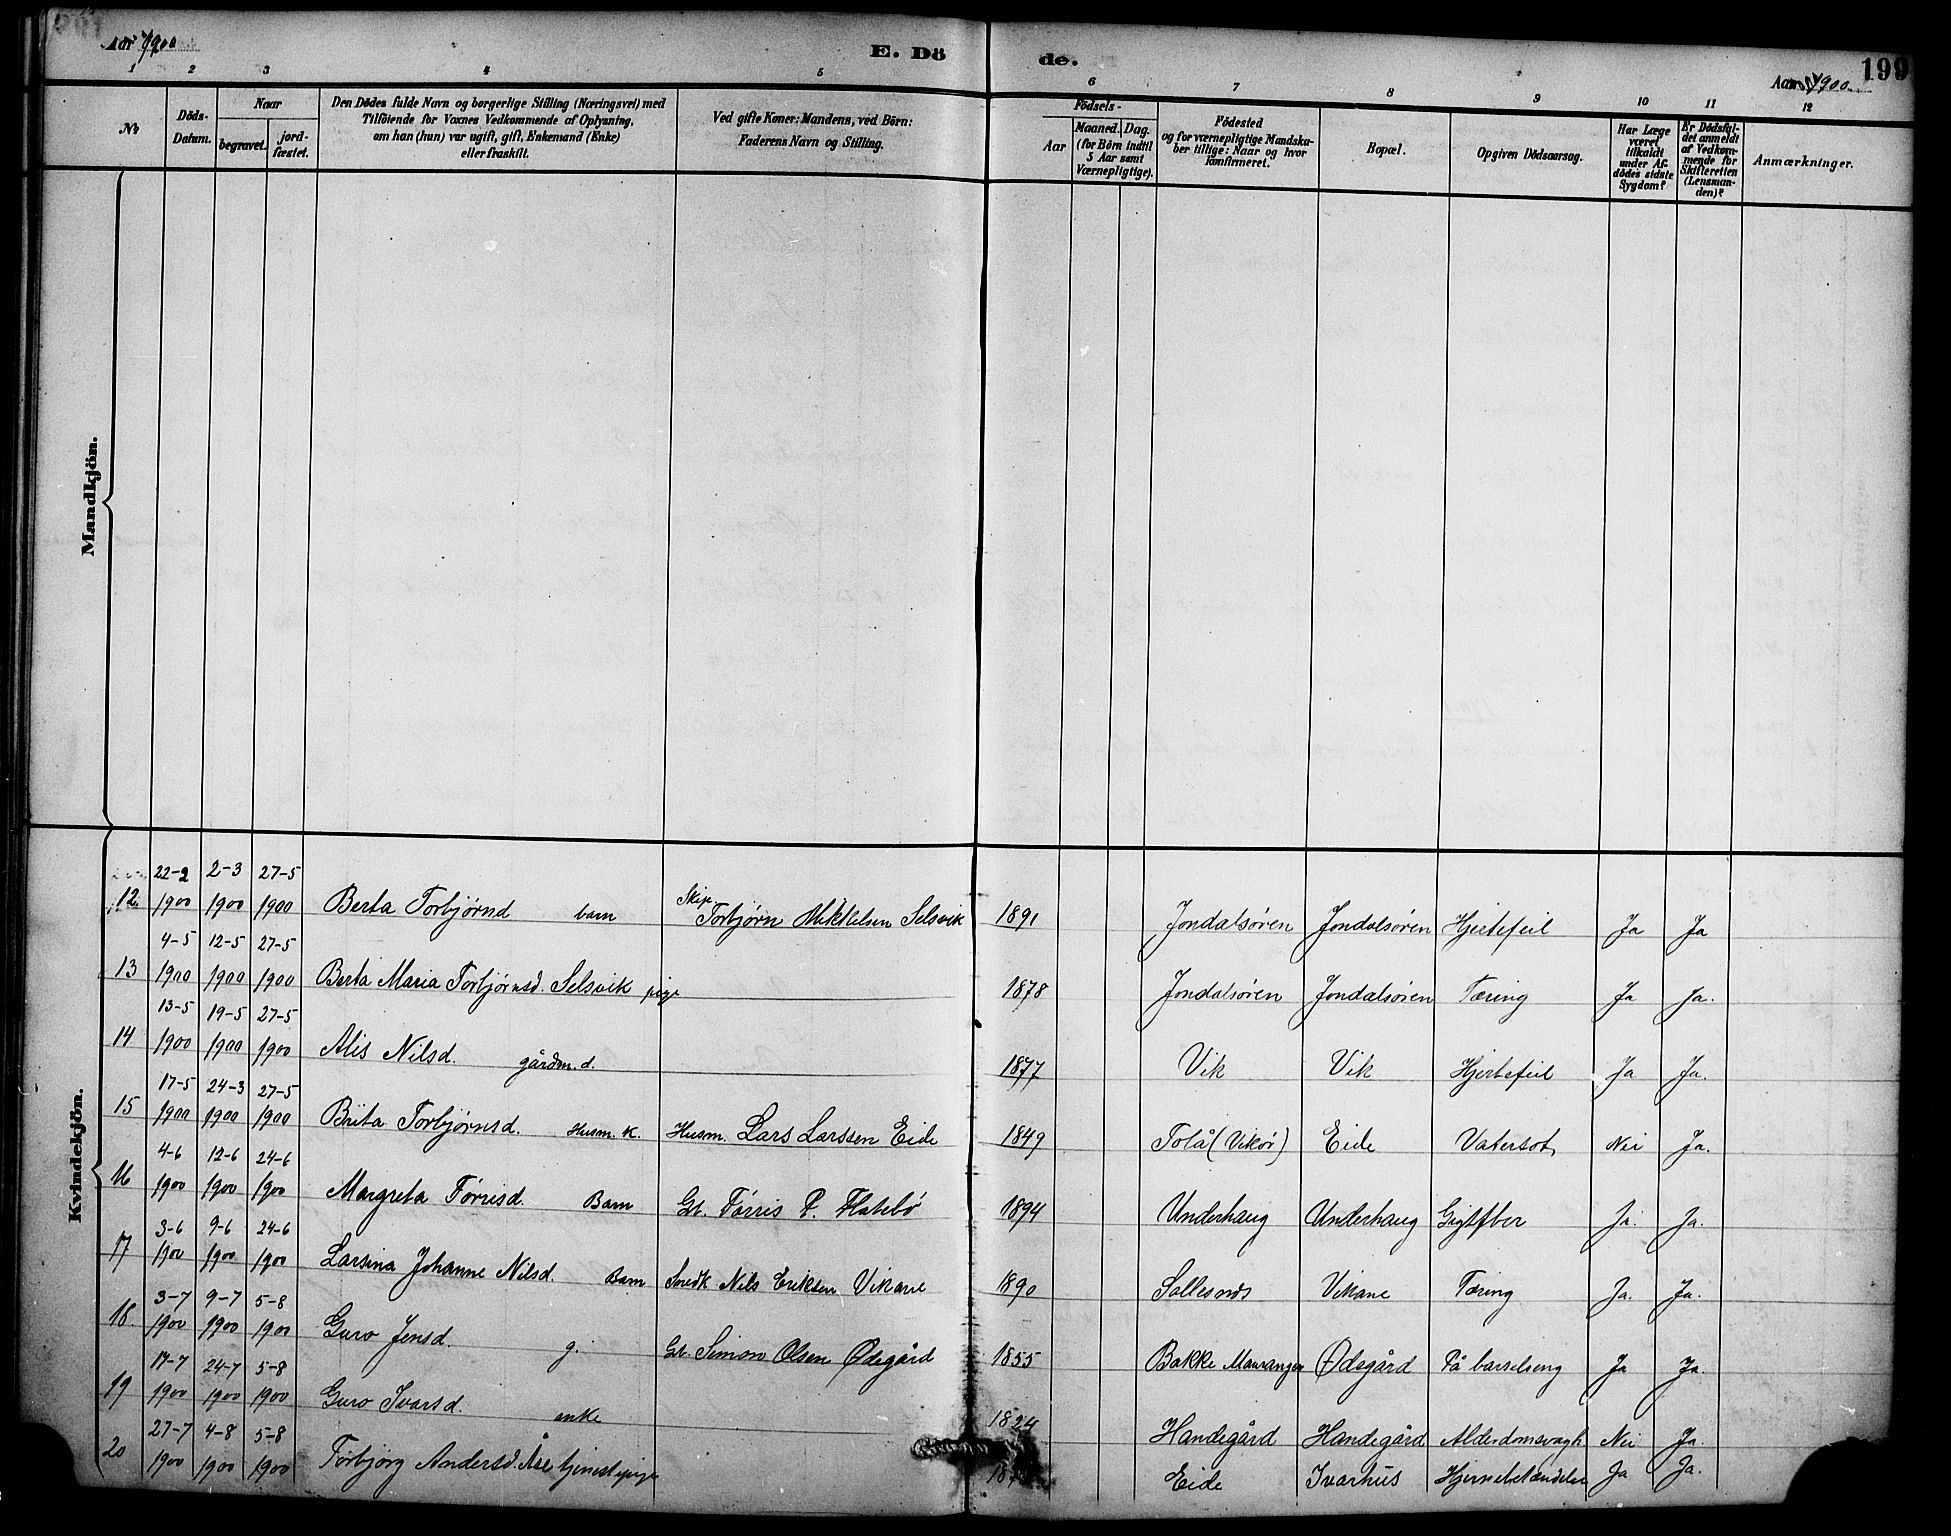 Aar 1900
E. Döde.
Aar 1900.
199
1 2 3 4 5 6 7 8 9 10 11 12
No
Döds-Datum.
Naar
begravet.
jordfæstet.
Den Dödes fulde Navn og borgerlige Stilling (Næringsvei) med
Tilföiende for Voxnes Vedkommende af Oplysning,
om han (hun) var ugift, gift, Enkemand (Enke)
eller fraskilt.
Ved gifte Koner: Mandens, ved Börn:
Faderens Navn og Stilling.
Födsels-
Aar
Maaned. Dag.
(for Börn indtil
5 Aar samt
Værnepligtige).
Födested
og for værnepligtige Mandska-
ber tillige: Naar og hvor
konfirmeret.
Bopæl.
Opgiven Dödsaarsag.
Har Læge
været
tilkaldt
under Af-
dödes sidste
Sygdom?
Er Dödsfal-
det anmeldt
af Vedkom-
mende for
Skifteretten
(Lensman-
den)?
Anmærkninger.
Mandkjön.
Kvindekjön.
12 22-2 1900 2-3 1900 27-5 1900 Berta Torbjørnd barn Skip. Torbjørn Mikkelsen Selsvik 1891 Jondalsören Jondalsören Hjertefeil Ja Ja
13 4-5 1900 12-5 1900 27-5 1900 Berta Maria Torbjørnsd. Selsvik pige 1878 Jondalsören Jondalsören Tæring Ja Ja.
14 13-5 1900 19-5 1900 27-5 1900 Alis Nilsd. gårdm. d. 1877 Vik Vik Hjertefeil Ja Ja.
15 17-5 1900 24-3 1900 27-5 1900 Brita Torbjørnsd. Husm. K. Husm. Lars Larssen Eide 1849 Tolå (Vikør) Eide Vatersot Nei Ja.
16 4-6 1900 12-6 1900 24-6 1900 Margreta Tørrisd. Barn Gb. Tørris P. Flatebø 1894 Underhaug Underhaug Gigtfber Ja Ja.
17 3-6 1900 9-6 1900 24-6 1900 Larsina Johanne Nilsd. Barn Snedk Nils Eriksen Vikane 1890 Sollesnæs Vikane Tæring Ja. Ja.
18. 3-7 1900 9-7 1900 5-8 1900 Guro Jensd. g. Gb. Simon Olsen Ødegård 1855 Bakke Mauranger Ødegård På barselseng Ja Ja.
19 17-7 1900 24-7 1900 5-8 1900 Guro Ivarsd. enke 1824 Handegård Handegård Alderdomsvagh Nei Ja.
20 27-7 1900 4-8 1900 5-8 1900 Torbjörg Andersd. Åse tjenestepige Eide Ivarhus Hjernebetændelse Ja Ja.